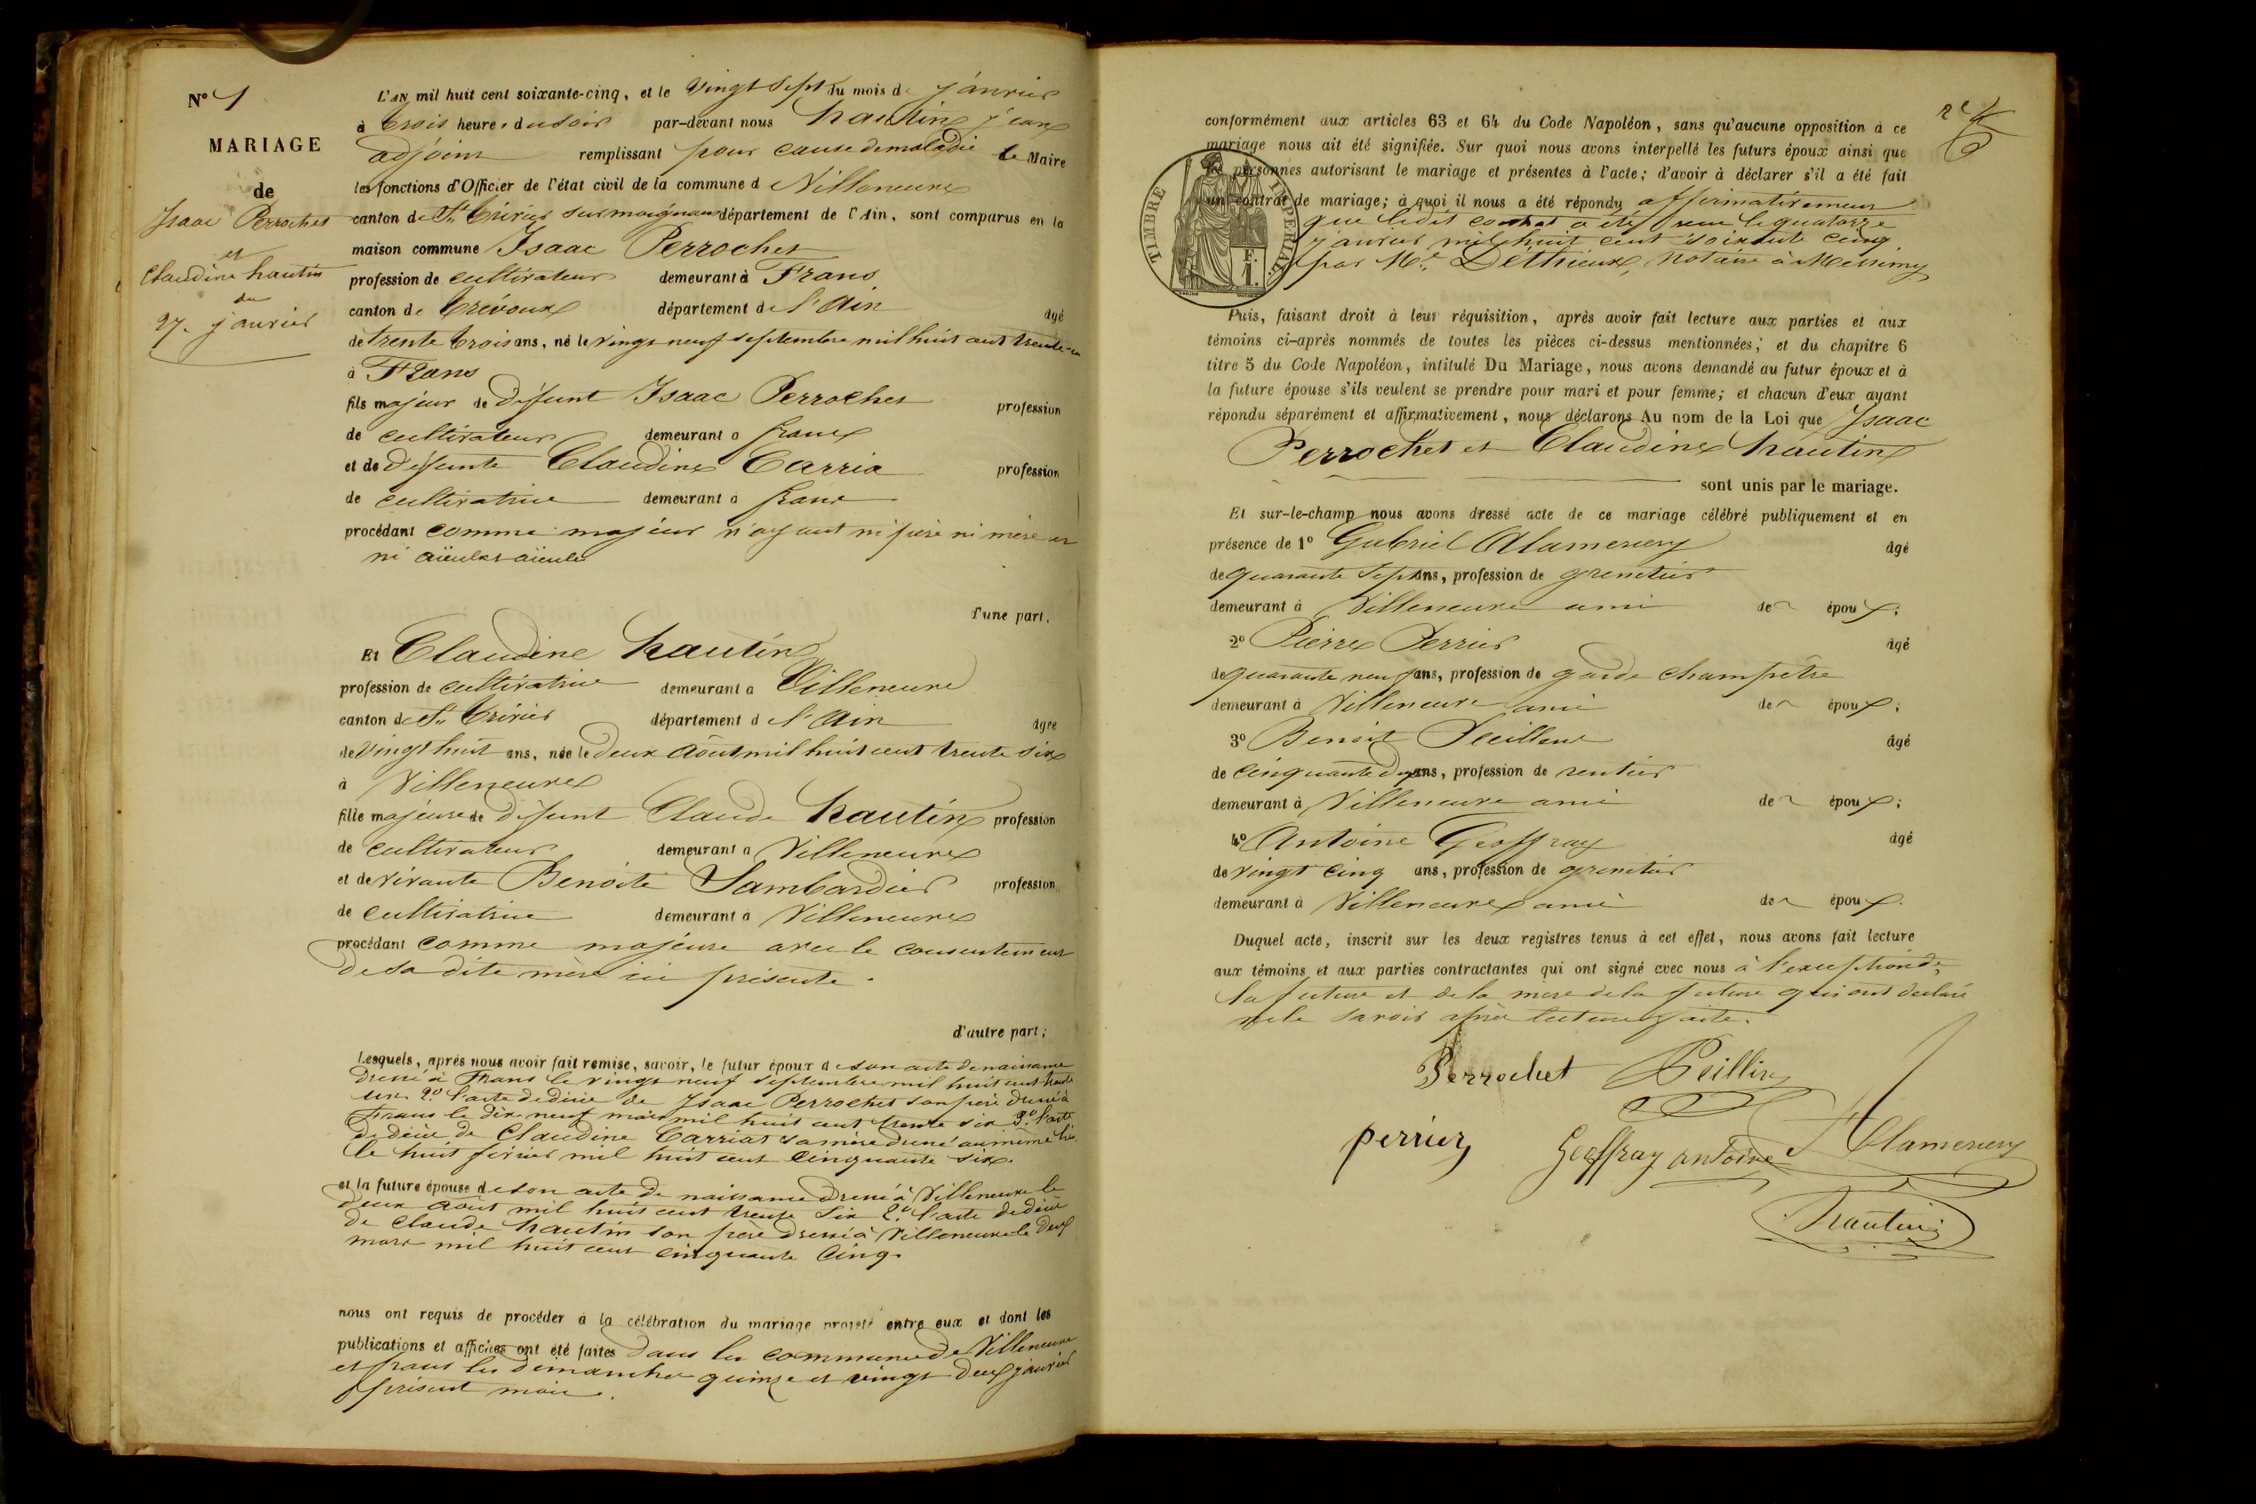 N° 1
MARIAGE
de
Isaac Perrochet
et
Claudine hautin
du
27. janvier
L'AN mil huit cent soixante-cinq, et le vingt sept du mois de janvier
à trois heures du soir par-devant nous hautin jean
adjoint remplissant pour cause de maladie le Maire
les fonctions d'Officier de l'état civil de la commune d Villeneuve
canton de St trivier sur moignans département de l'Ain, sont comparus en la
maison commune Isaac Perrochet
profession de cultivateur demeurant à Frans
canton de trévoux département de l'Ain âgé
de trente trois ans, né le vingt neuf septembre mil huit cent trente-un
à Frans
fils majeur de défunt Isaac Perrochet profession
de cultivateur demeurant à frans
et de défunte Claudine Carria profession
de cultivatrice demeurant à frans
procédant comme majeur n'ayant ni père ni mère et
ni aïeuls aïeules
d'une part.
Et Claudine hautin
profession de cultivatrice demeurant à Villeneuve
canton de St trivier département d l'Ain âgée
de vingt huit ans, née le deux août mil huit cent trente six
à Villeneuve
fille majeure de défunt Claude hautin profession
de cultivateur demeurant à Villeneuve
et de vivante Benoite Lambardier profession
de cultivatrice demeurant à Villeneuve
procédant comme majeure avec le consentement
de sa dite mère ici présente.
d'autre part;
Lesquels, après nous avoir fait remise, savoir, le futur époux de son acte de naissance
dressé à Frans le vingt neuf septembre mil huit cent trente
un 2° l'acte de décès de Isaac Perrochet son père dressé à
Frans le dix neuf mars mil huit cent trente six 3° l'acte
de décès de Claudine Carriat sa mère dressé au même lieu
le huit février mil huit cent cinquante six.
et la future épouse de son acte de naissance dressé à Villeneuve le
deux août mil huit cent trente six 2° l'acte de décès
de Claude hautin son père dressé à Villeneuve le deux
mars mil huit cent cinquante cinq.
nous ont requis de procéder à la célébration du mariage projeté entre eux et dont les
publications et affiches ont été faites dans les communes de Villeneuve
et frans les dimanches quinze et vingt deux janvier
présent mois.
conformément aux articles 63 et 64 du Code Napoléon, sans qu'aucune opposition à ce
mariage nous ait été signifiée. Sur quoi nous avons interpellé les futurs époux ainsi que
les personnes autorisant le mariage et présentes à l'acte; d'avoir à déclarer s'il a été fait
un contrat de mariage; à quoi il nous a été répondu affirmativement
que ledit contrat a été reçu le quatorze
janvier mil huit cent soixante cinq,
par Me Déthieux, notaire à Messimy
TIMBRE IMPERIAL
F.
1.
Puis, faisant droit à leur réquisition, après avoir fait lecture aux parties et aux
témoins ci-après nommés de toutes les pièces ci-dessus mentionnées; et du chapitre 6
titre 5 du Code Napoléon, intitulé Du Mariage, nous avons demandé au futur époux et à
la future épouse s'ils veulent se prendre pour mari et pour femme; et chacun d'eux ayant
répondu séparément et affirmativement, nous déclarons Au nom de la Loi que Isaac
Perrochet et Claudine hautin
sont unis par le mariage.
Et sur-le-champ nous avons dressé acte de ce mariage célébré publiquement et en
présence de 1° Gabriel Clamerery âgé
de quarante sept ans, profession de grenetier
demeurant à Villeneuve ami de époux;
2° Pierre Perrier âgé
de quarante neuf ans, profession de garde champêtre
demeurant à Villeneuve ami de époux;
3° Benoit âgé
de cinquante ans, profession de rentier
demeurant à Villeneuve ami de époux;
4° Antoine Geoffray âgé
de vingt cinq ans, profession de grenetier
demeurant à Villeneuve ami de époux.
Duquel acte, inscrit sur les deux registres tenus à cet effet, nous avons fait lecture
aux témoins et aux parties contractantes qui ont signé avec nous à l'exception de
la future et de la mère de la future qui ont déclaré
ne le savoir après lecture faite.
Perrochet
perrier Geoffray antoine Clamerery
hautin